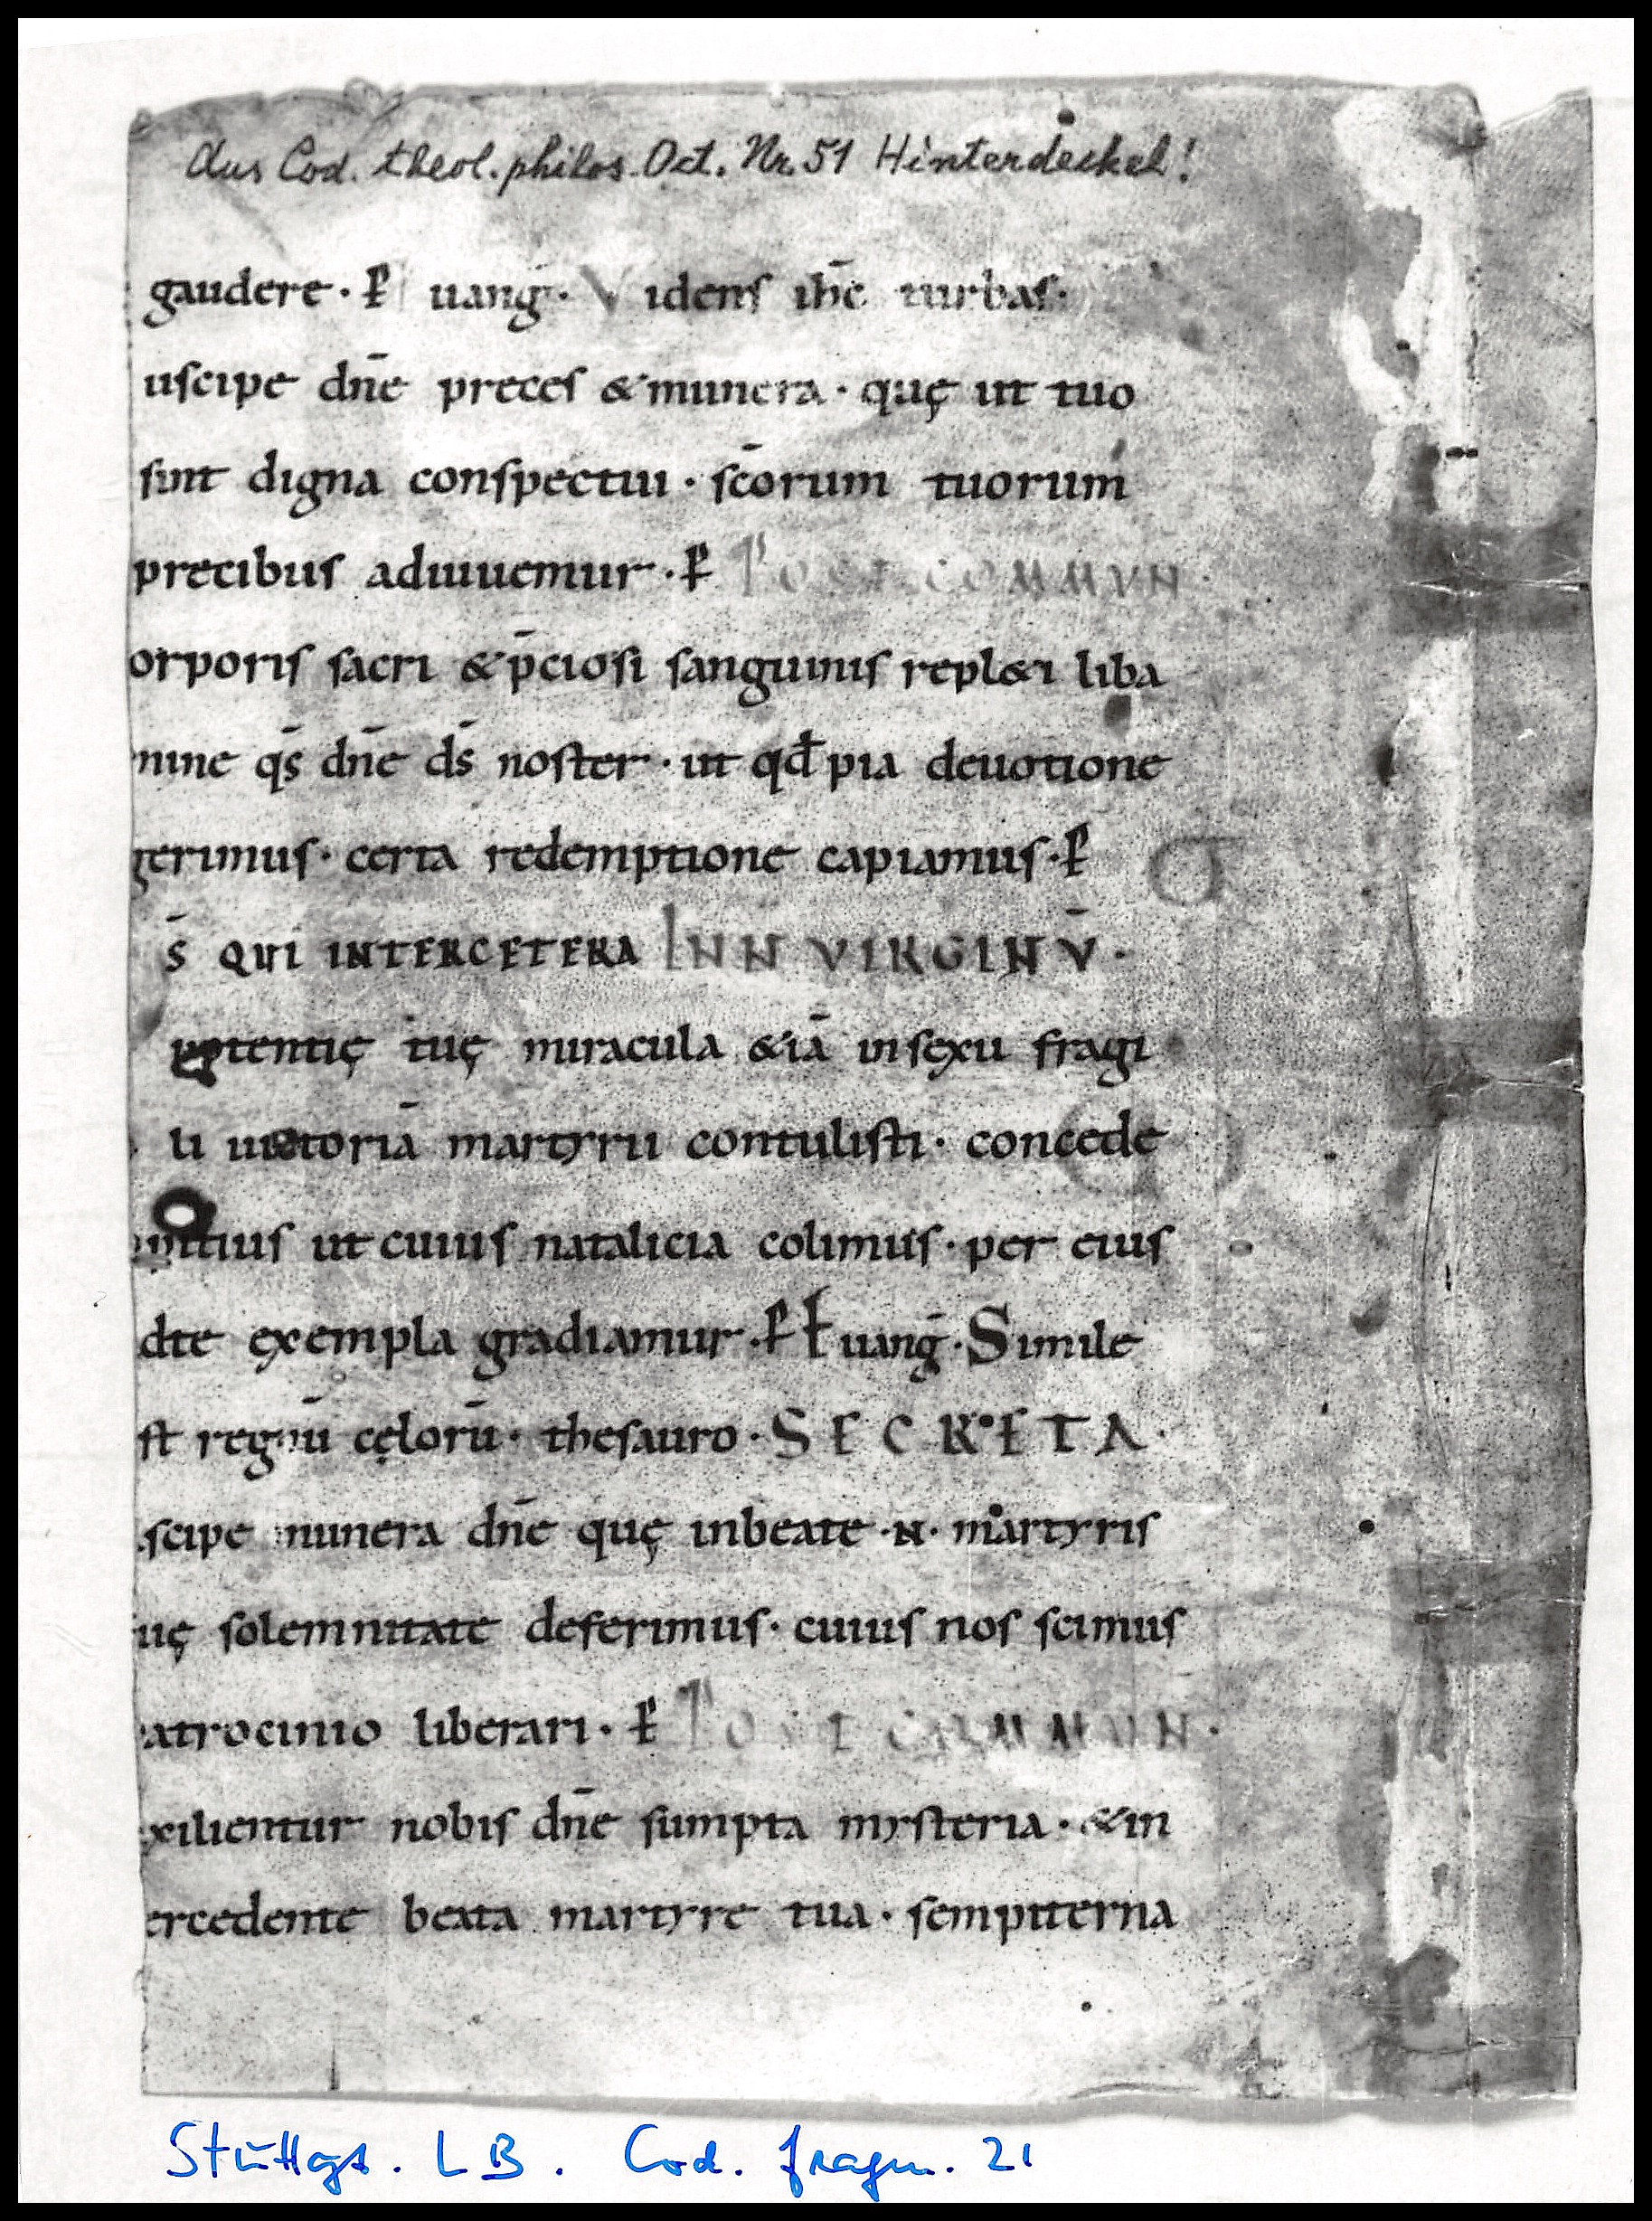 Aus Cod. theol. philos. Oct. Nr. 51 Hinterdeckel!
gaudere · P̵ uang̅ · V idens ih̅c turbas ·
uscipe dn̅e preces & munera · quę ut tuo
sint digna conspectui · sc̅orum tuorum
precibus adiuuemur · P̵ POST COMMVN ·
orporis sacri & p̅ciosi sanguinis repl&i liba
mine qs̅ dn̅e ds̅ noster · ut qđ pia deuotione
gerimus · certa redemptione capiamus · P̵
S̅ QUI INTERCETERA IN N VIRGINV̅ ·
potentię tuę miracula &ia̅ insexu fragi
li uictoria̅ martyrii contulisti · concede
pitius ut cuius natalicia colimus · per eius
dte exempla gradiamur · P̵ Euang̅ · Simile
st regnu̅ cęloru̅ · thesauro · SECRETA ·
scipe munera dn̅e quę inbeate · N · martyris
tuę solemnitate deferimus · cuius nos scimus
atrocinio liberari · P̵ POST COMMVN ·
xilientur nobis dn̅e sumpta mysteria · & in
ercedente beata martyre tua · sempiterna
Stuttgt. LB. Cod. fragm. 21